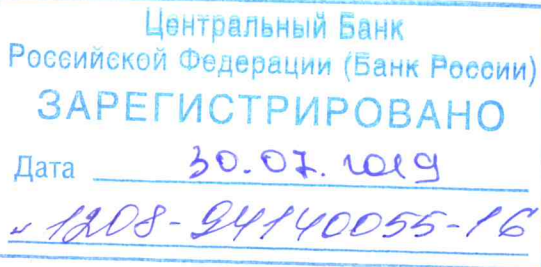 Центральный Банк
Российской Федерации (Банк России)
ЗАРЕГИСТРИРОВАНО
Дата 30.07.2019
1208-94140055-16